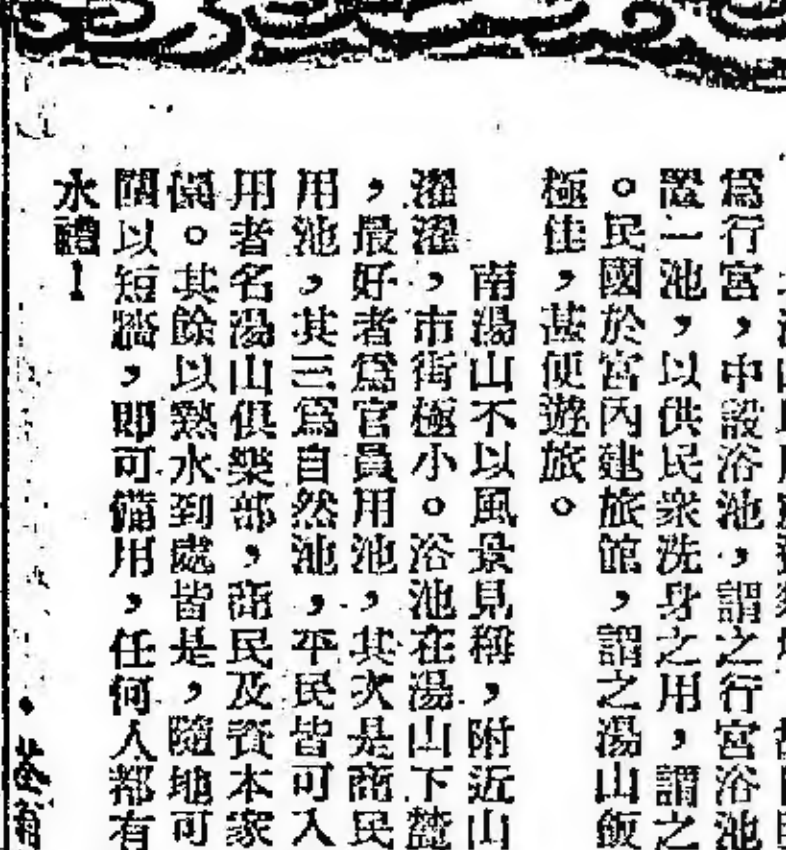 為行宮，中設浴池，謂之行宮浴池
置一池，以供民衆洗身之用，謂之
。民國於宮內建旅館，謂之湯山飯
極佳，甚便遊旅。
南湯山不以風景見稱，附近山
濯濯，市街極小。浴池在湯山下麓
，最好者為官員用池，其次是商民
用池，其三為自然池，平民皆可入
用者名湯山俱樂部，商民及資本家
。其餘以熱水到處皆是，隨地可
以短牆，即可備用，任何人都有
水禮！